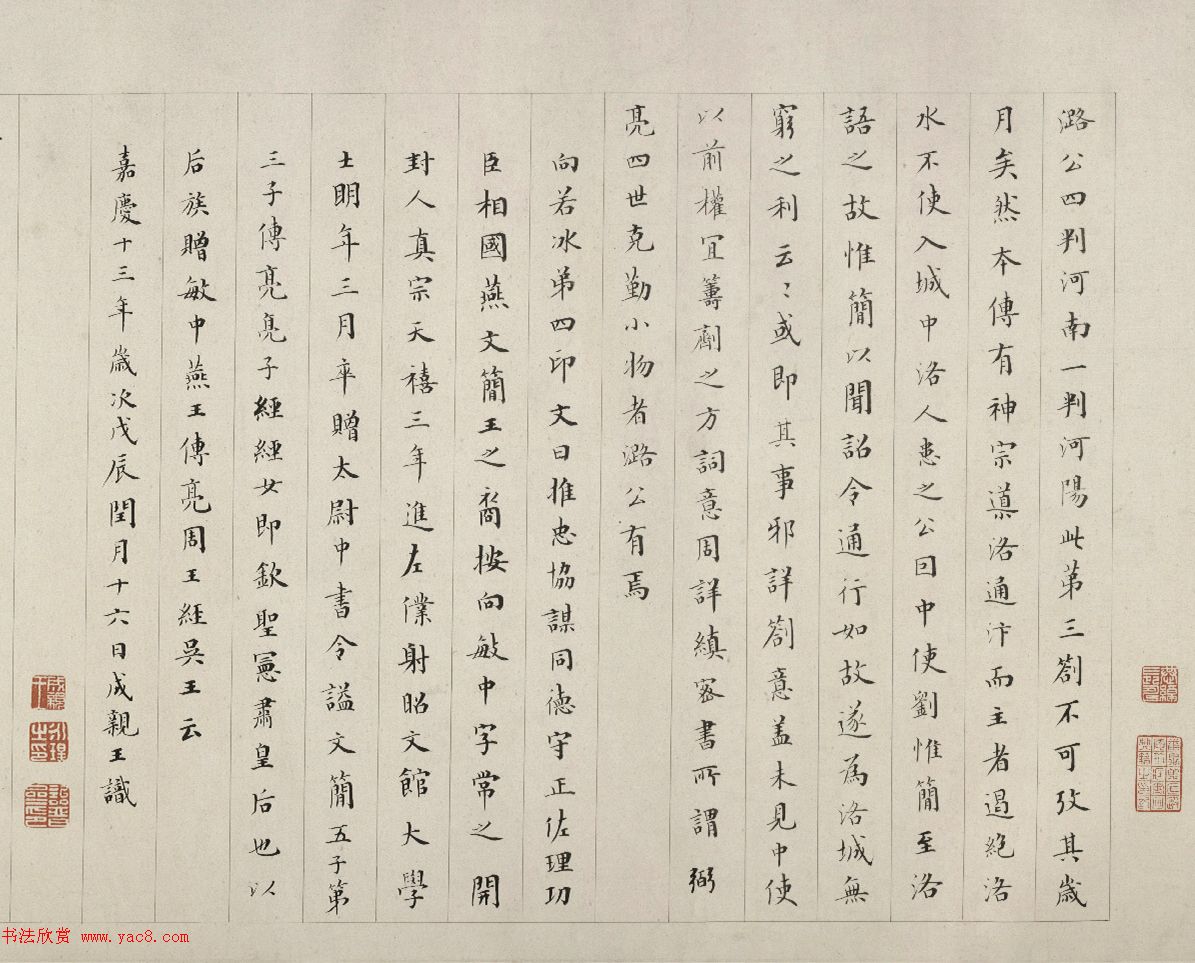 潞公四判河南一判河陽此苐三劄不可攷其歲
月矣然本傳有神宗導洛通汴而主者遏絶洛
水不使入城中洛人患之公因中使劉惟簡至洛
語之故惟簡以聞詔令通行如故遂為洛城無
窮之利云〻或即其事邪詳劄意盖未見中使
以前權宜籌劑之方詞意周詳縝密書所謂弼
亮四世克勤小物者潞公有焉
向若冰苐四印文曰推忠協謀同德守正佐理功
臣相國燕文簡王之裔按向敏中字常之開
封人真宗天禧三年進左僕射昭文館大學
士明年三月卒贈太尉中書令謚文簡五子第
三子傳亮亮子經經女即欽聖憲肅皇后也以
后族贈敏中燕王傳亮周王經吳王云
嘉慶十三年歲次戊辰閏月十六日成親王識
成親王
永瑆之印
书法欣赏 www.yac8.com